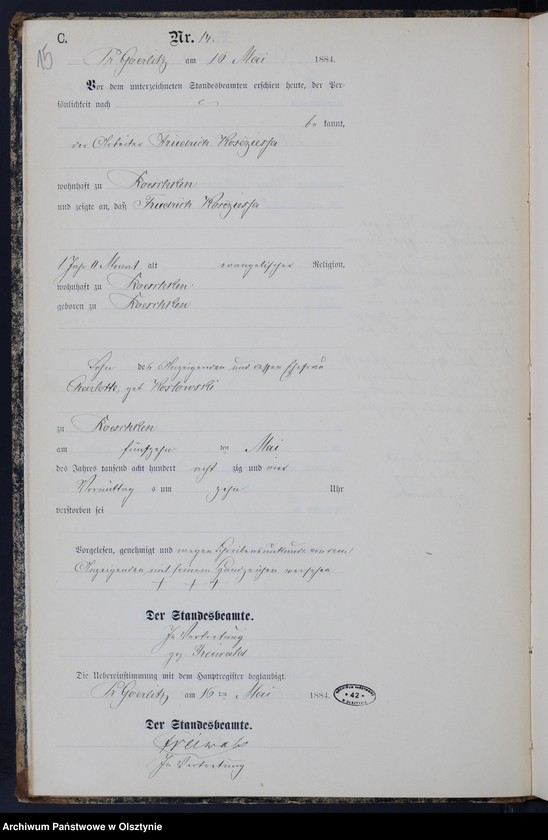 15
C.
Nr. 14.
Pr Goerlitz am 16 Mai 1884.
Vor dem unterzeichneten Standesbeamten erschien heute, der Per-
sönlichkeit nach
be kannt,
der Arbeiter Friedrich
wohnhaft zu Koeschken
und zeigte an, daß Friedrich
1 Jahr 11 Monat alt evangelischer Religion,
wohnhaft zu Koeschken
geboren zu Koeschken
Sohn des Anzeigenden und dessen Ehefrau
Charlotte, geb Koslowski
zu Koeschken
am fünfzehn ten Mai
des Jahres tausend acht hundert acht zig und vier
Vormittag s um zehn Uhr
verstorben sei
Vorgelesen, genehmigt und wegen Schreibensunkunde von dem
Anzeigenden mit seinem Handzeichen versehen
+ + +
Der Standesbeamte.
In Vertretung
gez Freiwald
Die Uebereinstimmung mit dem Hauptregister beglaubigt.
Pr Goerlitz am 16 ten Mai 1884.
42
Der Standesbeamte.
Freiwald
In Vertretung
Archiwum Państwowe w Olsztynie